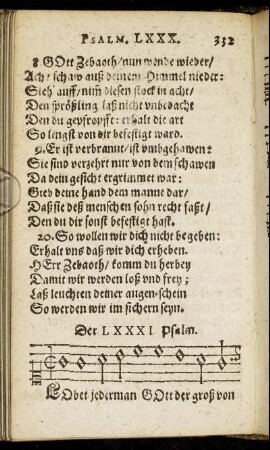 PSALM. LXXX. 332
8 GOtt Zebaoth/nun wende wieder/
Ach! schaw auß deinem Himmel nieder:
Sieh' auff/nim diesen stock in acht/
Den sprößling laß nicht vnbedacht
Den du gepfropfft: erhalt die art
So lengst von dir befestigt ward.
9. Er ist verbrannt/ist vmbgehawen:
Sie sind verzehrt nur von dem schawen
Da dein gesicht ergrimmet war:
Gieb deine hand dem manne dar/
Daß sie deß menschen sohn recht faßt/
Den du dir sonst befestigt hast.
20. So wollen wir dich nicht begeben:
Erhalt vns daß wir dich erheben.
HErr Zebaoth/komm du herbey
Damit wir werden loß vnd frey;
Laß leuchten deiner augen-schein
So werden wir im sichern seyn.
Der LXXXI Psalm.
LObet jederman GOtt der groß von